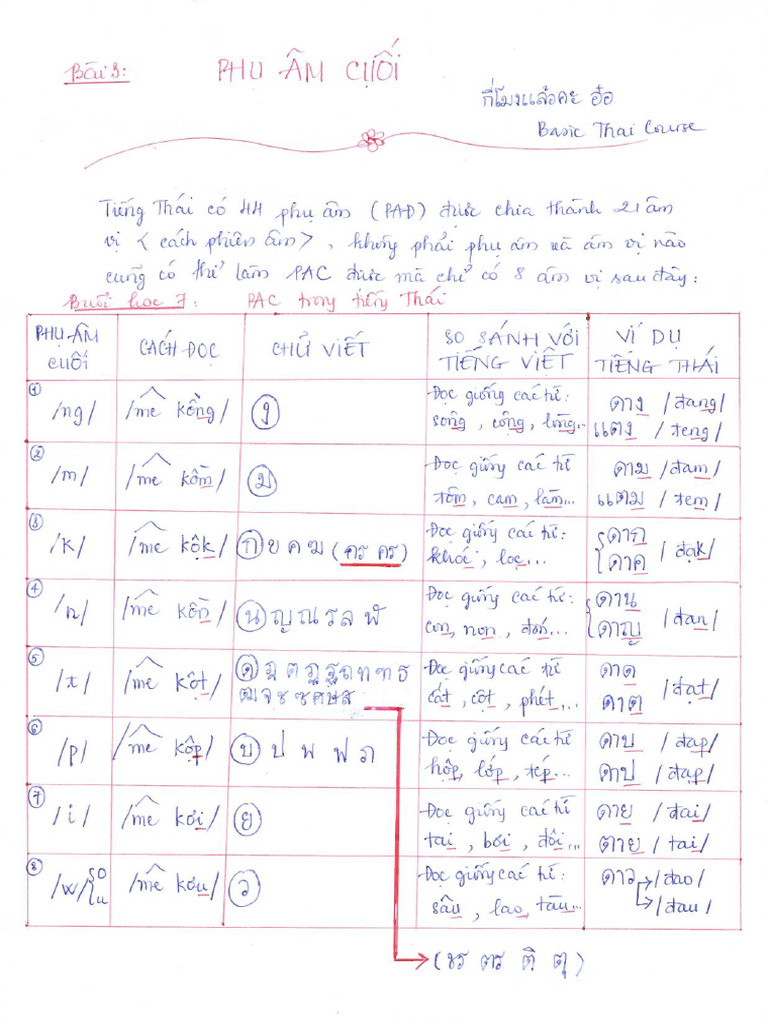 Bài 8: PHỤ ÂM CUỐI
กี่โมงแล้วคะ อ๋อ
Basic Thai Course
Tiếng Thái có 44 phụ âm (PAĐ) được chia thành 21 âm
vị < cách phiên âm >, không phải phụ âm và âm vị nào
cũng có thể làm PAC được mà chỉ có 8 âm vị sau đây:
Buổi học 7: PAC trong tiếng Thái
PHỤ ÂM CUỐI | CÁCH ĐỌC | CHỮ VIẾT | SO SÁNH VỚI TIẾNG VIỆT | VÍ DỤ TIẾNG THÁI
① /ng/ | /me kồng/ | ง | Đọc giống các từ: song, công, lồng... | ดาง /đang/ แตง /teng/
② /m/ | /me kồm/ | ม | Đọc giống các từ tôm, cam, làm... | ดาม /đam/ แตม /tem/
③ /k/ | /me kộk/ | ก ข ค ฆ (คร คร) | Đọc giống các từ: khoác, lọc... | ดาก ดาค /đạk/
④ /n/ | /me kồn/ | น ญ ณ ร ล ฬ | Đọc giống các từ: con, non, đón... | ดาน ดาญ /đan/
⑤ /t/ | /me kột/ | ด ฎ ต ฏ ฐ ถ ท ฑ ธ ฒ จ ช ซ ศ ษ ส | Đọc giống các từ cất, cột, phét,... | ดาด ดาต /đạt/
⑥ /p/ | /me kộp/ | บ ป พ ฟ ภ | Đọc giống các từ hộp, lớp, tép... | ดาบ /đạp/ ดาป /đạp/
⑦ /i/ | /me kơi/ | ย | Đọc giống các từ tai, bơi, đôi... | ดาย /đai/ ตาย /tai/
⑧ /w/ o u | /me kơu/ | ว | Đọc giống các từ: sâu, lao, tàu... | ดาว /đao/ /đau/
(ตร ติ ตุ)